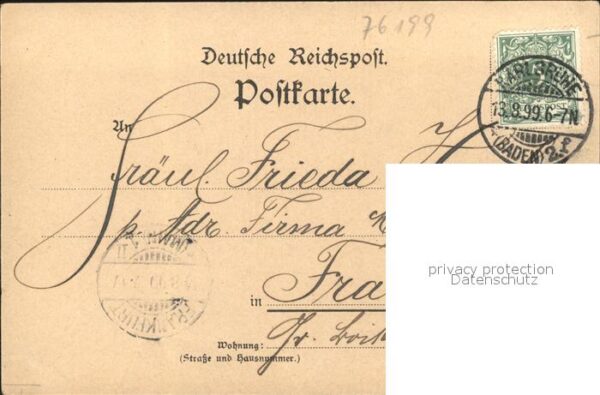 76199
Deutsche Reichspost.
Postkarte.
KARLSRUHE
13.9.99.6-7N
(BADEN) 2
An
Fräul. Frieda
p. Adr. Firma
in Fra
Gr.
Wohnung:
(Straße und Hausnummer.)
FRANKFURT
privacy protection
Datenschutz